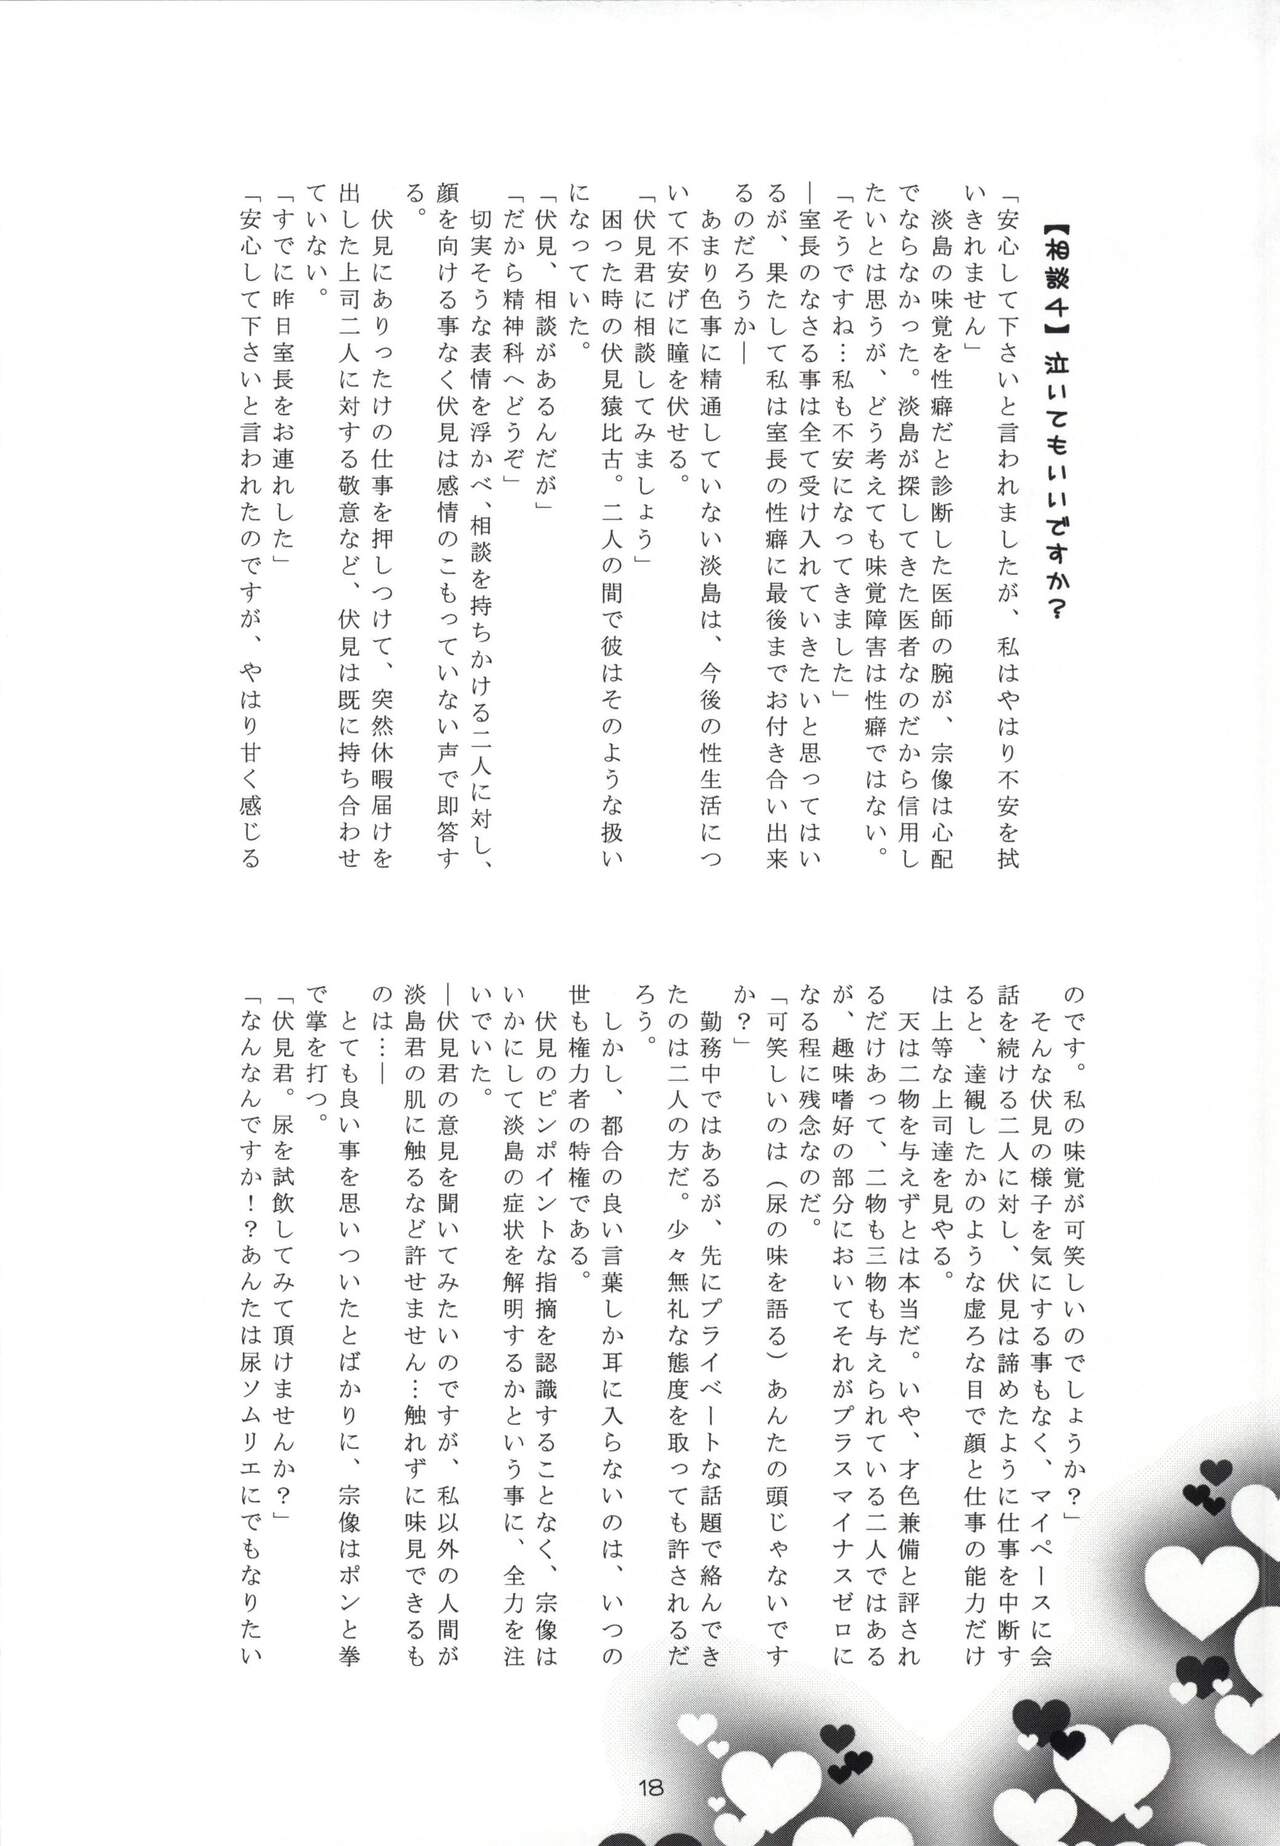 【相談4】泣いてもいいですか？
「安心して下さいと言われましたが、私はやはり不安を拭
いきれません」
　淡島の味覚を性癖だと診断した医師の腕が、宗像は心配
でならなかった。淡島が探してきた医者なのだから信用し
たいとは思うが、どう考えても味覚障害は性癖ではない。
「そうですね…私も不安になってきました」
―室長のなさる事は全て受け入れていきたいと思ってはい
るが、果たして私は室長の性癖に最後までお付き合い出来
るのだろうか―
　あまり色事に精通していない淡島は、今後の性生活につ
いて不安げに瞳を伏せる。
「伏見君に相談してみましょう」
　困った時の伏見猿比古。二人の間で彼はそのような扱い
になっていた。
「伏見、相談があるんだが」
「だから精神科へどうぞ」
　切実そうな表情を浮かべ、相談を持ちかける二人に対し、
顔を向ける事なく伏見は感情のこもっていない声で即答す
る。
　伏見にありったけの仕事を押しつけて、突然休暇届けを
出した上司二人に対する敬意など、伏見は既に持ち合わせ
ていない。
「すでに昨日室長をお連れした」
「安心して下さいと言われたのですが、やはり甘く感じる
のです。私の味覚が可笑しいのでしょうか？」
　そんな伏見の様子を気にする事もなく、マイペースに会
話を続ける二人に対し、伏見は諦めたように仕事を中断す
ると、達観したかのような虚ろな目で顔と仕事の能力だけ
は上等な上司達を見やる。
　天は二物を与えずとは本当だ。いや、才色兼備と評され
るだけあって、二物も三物も与えられている二人ではある
が、趣味嗜好の部分においてそれがプラスマイナスゼロに
なる程に残念なのだ。
「可笑しいのは（尿の味を語る）あんたの頭じゃないです
か？」
　勤務中ではあるが、先にプライベートな話題で絡んでき
たのは二人の方だ。少々無礼な態度を取っても許されるだ
ろう。
　しかし、都合の良い言葉しか耳に入らないのは、いつの
世も権力者の特権である。
　伏見のピンポイントな指摘を認識することなく、宗像は
いかにして淡島の症状を解明するかという事に、全力を注
いでいた。
―伏見君の意見を聞いてみたいのですが、私以外の人間が
淡島君の肌に触るなど許せません…触れずに味見できるも
のは…―
　とても良い事を思いついたとばかりに、宗像はポンと拳
で掌を打つ。
「伏見君。尿を試飲してみて頂けませんか？」
「なんなんですか！？あんたは尿ソムリエにでもなりたい
18